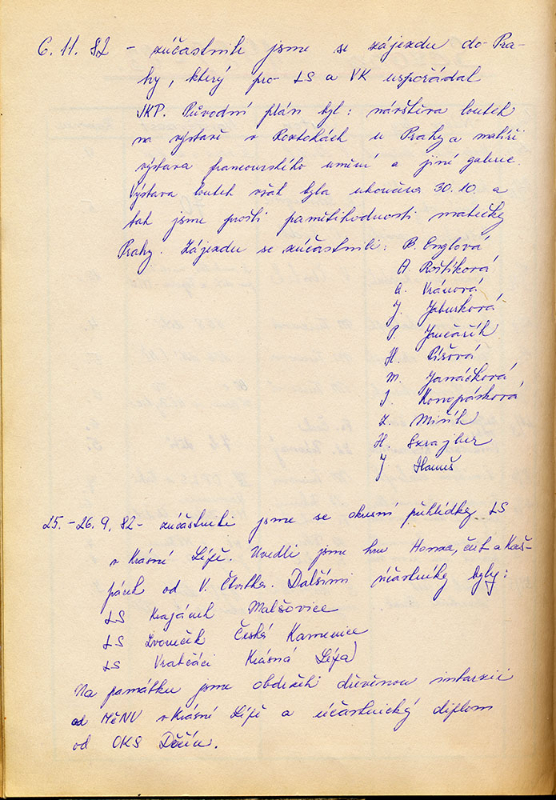 6. 11. 82 - zúčastnili jsme se zájezdu do Pra-
hy, který pro LS a VK uspořádal
JKP. Původní plán byl: návštěva loutek
na výstavě v Roztokách u Prahy a malíři
výstava francouzského umění a jiné galerie.
Výstava loutek však byla ukončena 30.10. a
tak jsme prošli pamětihodnosti matičky
Prahy. Zájezdu se zúčastnili: B. Englová
A. Roštíková
Vránová
J. Jaburková
P. Jančařík
H. Píšová
M. Janáčková
J. Konopásková
Z. Mišík
H. Szrajber
J. Hanuš
25. - 26. 9. 82 - zúčastnili jsme se okresní přehlídky LS
v Krásné Lípě. Uvedli jsme hru Honza, čert a Kaš-
párek od V. Dalšími účastníky byly:
LS Krajánek Malšovice
LS Zvoneček Česká Kamenice
LS Vratčáci Krásná Lípa
Na památku jsme obdrželi dřevěnou intarzii
od MěNV v Krásné Lípě a účastnický diplom
od OKS Děčín.